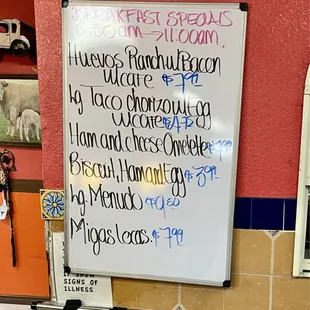 BREAKFAST SPECIALS
6:30am → 11:00am.
Huevos Ranch w/Bacon
w/cafe $7.95
lg. Taco chorizo w/Egg
w/cafe
Ham and cheese Omelette
Biscuit, Ham and Egg $3.99
lg. Menudo
Migas Locas. $7.99
SIGNS OF
ILLNESS